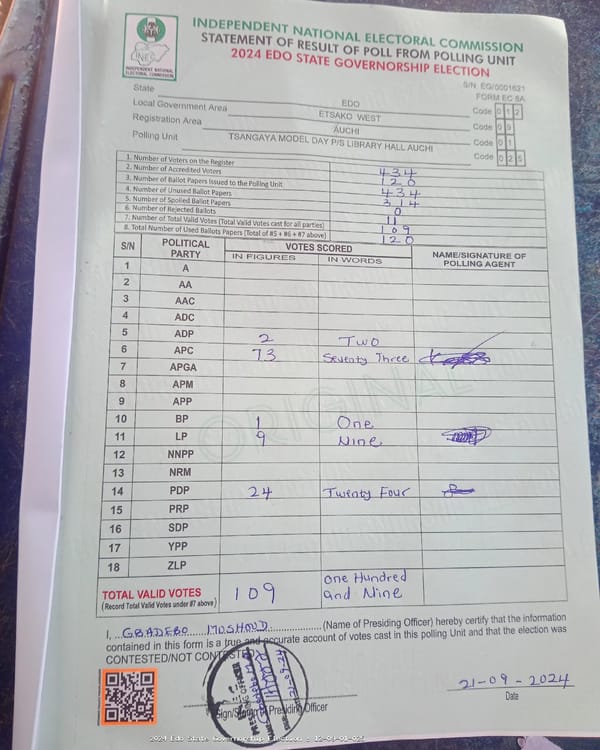 INDEPENDENT NATIONAL ELECTORAL COMMISSION
STATEMENT OF RESULT OF POLL FROM POLLING UNIT
2024 EDO STATE GOVERNORSHIP ELECTION
INEC
INDEPENDENT NATIONAL
ELECTORAL COMMISSION
S/N: EG/0001621
FORM EC 8A
State EDO Code 0 1 2
Local Government Area ETSAKO WEST Code 0 9
Registration Area AUCHI Code 0 1
Polling Unit TSANGAYA MODEL DAY P/S LIBRARY HALL AUCHI Code 0 2 5
1. Number of Voters on the Register 434
2. Number of Accredited Voters 120
3. Number of Ballot Papers Issued to the Polling Unit 434
4. Number of Unused Ballot Papers 314
5. Number of Spoiled Ballot Papers 0
6. Number of Rejected Ballots 11
7. Number of Total Valid Votes (Total Valid Votes cast for all parties) 109
8. Total Number of Used Ballots Papers (Total of #5 + #6 + #7 above) 120
S/N POLITICAL PARTY VOTES SCORED NAME/SIGNATURE OF POLLING AGENT
IN FIGURES IN WORDS
1 A
2 AA
3 AAC
4 ADC
5 ADP 2 Two
6 APC 73 Seventy Three
7 APGA
8 APM
9 APP
10 BP 1 One
11 LP 9 Nine
12 NNPP
13 NRM
14 PDP 24 Twenty Four
15 PRP
16 SDP
17 YPP
18 ZLP
ORIGINAL
TOTAL VALID VOTES 109 One Hundred
(Record Total Valid Votes under #7 above) and Nine
I, GBADEBO MOSHOOD (Name of Presiding Officer) hereby certify that the information
contained in this form is a true and accurate account of votes cast in this polling Unit and that the election was
CONTESTED/NOT CONTESTED
21-09-2024
Sign/Stamp of Presiding Officer
Date
2024 Edo State Governorship Election - 12-09-01-025